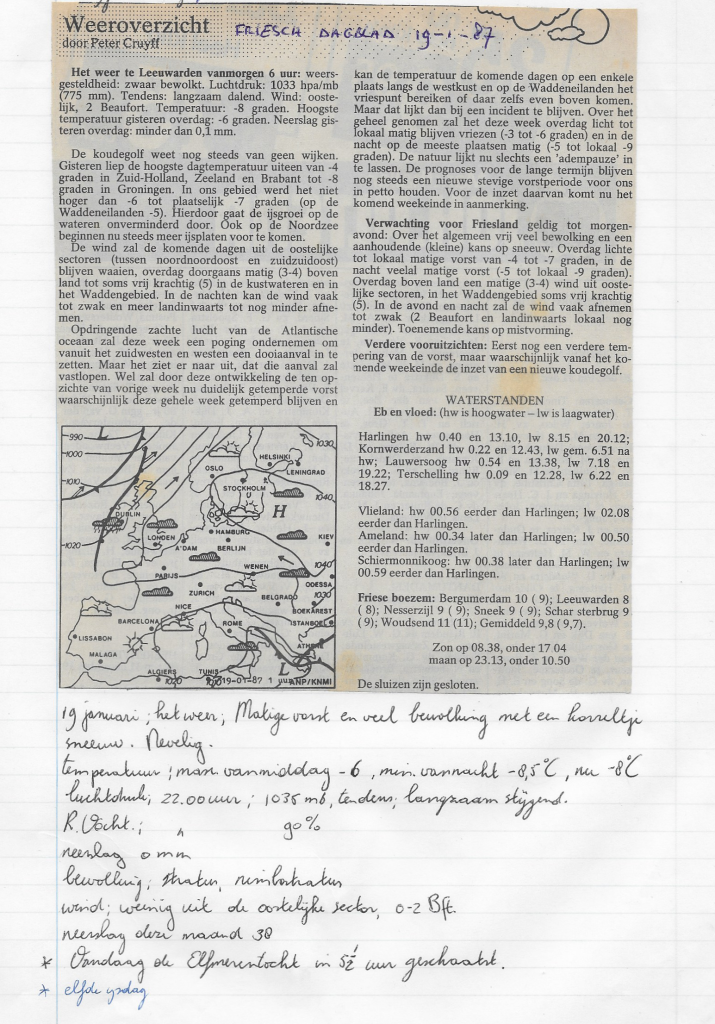 Weeroverzicht
FRIESCH DAGBLAD 19-1-87
door Peter Cruyff
Het weer te Leeuwarden vanmorgen 6 uur: weers-
gesteldheid: zwaar bewolkt. Luchtdruk: 1033 hpa/mb
(775 mm). Tendens: langzaam dalend. Wind: ooste-
lijk, 2 Beaufort. Temperatuur: -8 graden. Hoogste
temperatuur gisteren overdag: -6 graden. Neerslag gis-
teren overdag: minder dan 0,1 mm.
De koudegolf weet nog steeds van geen wijken.
Gisteren liep de hoogste dagtemperatuur uiteen van -4
graden in Zuid-Holland, Zeeland en Brabant tot -8
graden in Groningen. In ons gebied werd het niet
hoger dan -6 tot plaatselijk -7 graden (op de
Waddeneilanden -5). Hierdoor gaat de ijsgroei op de
wateren onverminderd door. Ook op de Noordzee
beginnen nu steeds meer ijsplaten voor te komen.
De wind zal de komende dagen uit de oostelijke
sectoren (tussen noordnoordoost en zuidzuidoost)
blijven waaien, overdag doorgaans matig (3-4) boven
land tot soms vrij krachtig (5) in de kustwateren en in
het Waddengebied. In de nachten kan de wind vaak
tot zwak en meer landinwaarts tot nog minder afne-
men.
Opdringende zachte lucht van de Atlantische
oceaan zal deze week een poging ondernemen om
vanuit het zuidwesten en westen een dooiaanval in te
zetten. Maar het ziet er naar uit, dat die aanval zal
vastlopen. Wel zal door deze ontwikkeling de ten op-
zichte van vorige week nu duidelijk getemperde vorst
waarschijnlijk deze gehele week getemperd blijven en
kan de temperatuur de komende dagen op een enkele
plaats langs de westkust en op de Waddeneilanden het
vriespunt bereiken of daar zelfs even boven komen.
Maar dat lijkt dan bij een incident te blijven. Over het
geheel genomen zal het deze week overdag licht tot
lokaal matig blijven vriezen (-3 tot -6 graden) en in de
nacht op de meeste plaatsen matig (-5 tot lokaal -9
graden). De natuur lijkt nu slechts een 'adempauze' in
te lassen. De prognoses voor de lange termijn blijven
nog steeds een nieuwe stevige vorstperiode voor ons
in petto houden. Voor de inzet daarvan komt nu het
komend weekeinde in aanmerking.
Verwachting voor Friesland geldig tot morgen-
avond: Over het algemeen vrij veel bewolking en een
aanhoudende (kleine) kans op sneeuw. Overdag lichte
tot lokaal matige vorst van -4 tot -7 graden, in de
nacht veelal matige vorst (-5 tot lokaal -9 graden).
Overdag boven land een matige (3-4) wind uit ooste-
lijke sectoren, in het Waddengebied soms vrij krachtig
(5). In de avond en nacht zal de wind vaak afnemen
tot zwak (2 Beaufort en landinwaarts lokaal nog
minder). Toenemende kans op mistvorming.
Verdere vooruitzichten: Eerst nog een verdere tem-
pering van de vorst, maar waarschijnlijk vanaf het ko-
mende weekeinde de inzet van een nieuwe koudegolf.
WATERSTANDEN
Eb en vloed: (hw is hoogwater – lw is laagwater)
Harlingen hw 0.40 en 13.10, lw 8.15 en 20.12;
Kornwerderzand hw 0.22 en 12.43, lw gem. 6.51 na
hw; Lauwersoog hw 0.54 en 13.38, lw 7.18 en
19.22; Terschelling hw 0.09 en 12.28, lw 6.22 en
18.27.
Vlieland: hw 00.56 eerder dan Harlingen; lw 02.08
eerder dan Harlingen.
Ameland: hw 00.34 later dan Harlingen; lw 00.50
eerder dan Harlingen.
Schiermonnikoog: hw 00.38 later dan Harlingen; lw
00.59 eerder dan Harlingen.
Friese boezem: Bergumerdam 10 ( 9); Leeuwarden 8
( 8); Nesserzijl 9 ( 9); Sneek 9 ( 9); Schar sterbrug 9
( 9); Woudsend 11 (11); Gemiddeld 9,8 (9,7).
Zon op 08.38, onder 17 04
maan op 23.13, onder 10.50
De sluizen zijn gesloten.
990
1000
1010
1020
1030
OSLO
HELSINKI
LENINGRAD
STOCKHOLM
1040
H
DUBLIN
LONDEN
A'DAM
HAMBURG
BERLIJN
KIEV
PARIJS
WENEN
1040
ZURICH
ODESSA
1030
BELGRADO
BOEKAREST
NICE
BARCELONA
ROME
ISTANBOEL
LISSABON
MALAGA
ATHENE
ALGIERS
TUNIS
L
1020
19-01-87 1 uur ANP/KNMI
19 januari; het weer; Matige vorst en veel bewolking met een korreltje
sneeuw. Nevelig.
temperatuur; max. vanmiddag -6, min. vannacht -8,5°C, nu -8°C
luchtdruk; 22.00 uur; 1035 mb, tendens; langzaam stijgend.
R.Vocht.; " 90%
neerslag 0 mm
bewolking; stratus, nimbostratus
wind; weinig uit de oostelijke sector, 0-2 Bft.
neerslag deze maand 38
* Vandaag de Elfmerentocht in 5½ uur geschaatst.
* elfde ijsdag